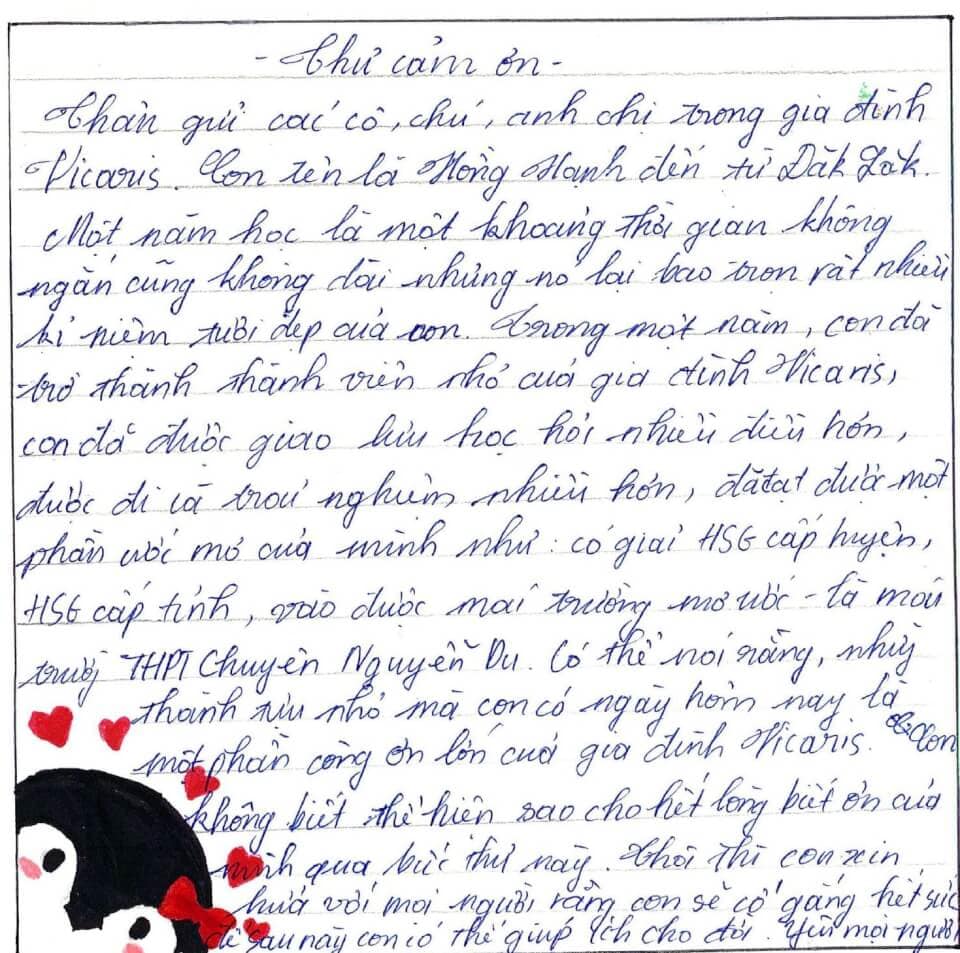 - Thư cảm ơn -
Thân gửi các cô, chú, anh chị trong gia đình
Vicaris. Con tên là Hồng Hạnh đến từ Đăk Lăk.
Một năm học là một khoảng thời gian không
ngắn cũng không dài nhưng nó lại bao trọn rất nhiều
kỉ niệm tươi đẹp của con. Trong một năm, con đã
trở thành thành viên nhỏ của gia đình Vicaris,
con đã được giao lưu học hỏi nhiều điều hơn,
được đi và trải nghiệm nhiều hơn, đã đạt được một
phần ước mơ của mình như: có giải HSG cấp huyện,
HSG cấp tỉnh, vào được mái trường mơ ước - là mái
trường THPT Chuyên Nguyễn Du. Có thể nói rằng, những
thành tựu nhỏ mà con có ngày hôm nay là
một phần công ơn lớn của gia đình Vicaris. Con
không biết thể hiện sao cho hết lòng biết ơn của
mình qua bức thư này. Thôi thì con xin
hứa với mọi người rằng con sẽ cố gắng hết sức
để sau này con có thể giúp ích cho đời. Yêu mọi người